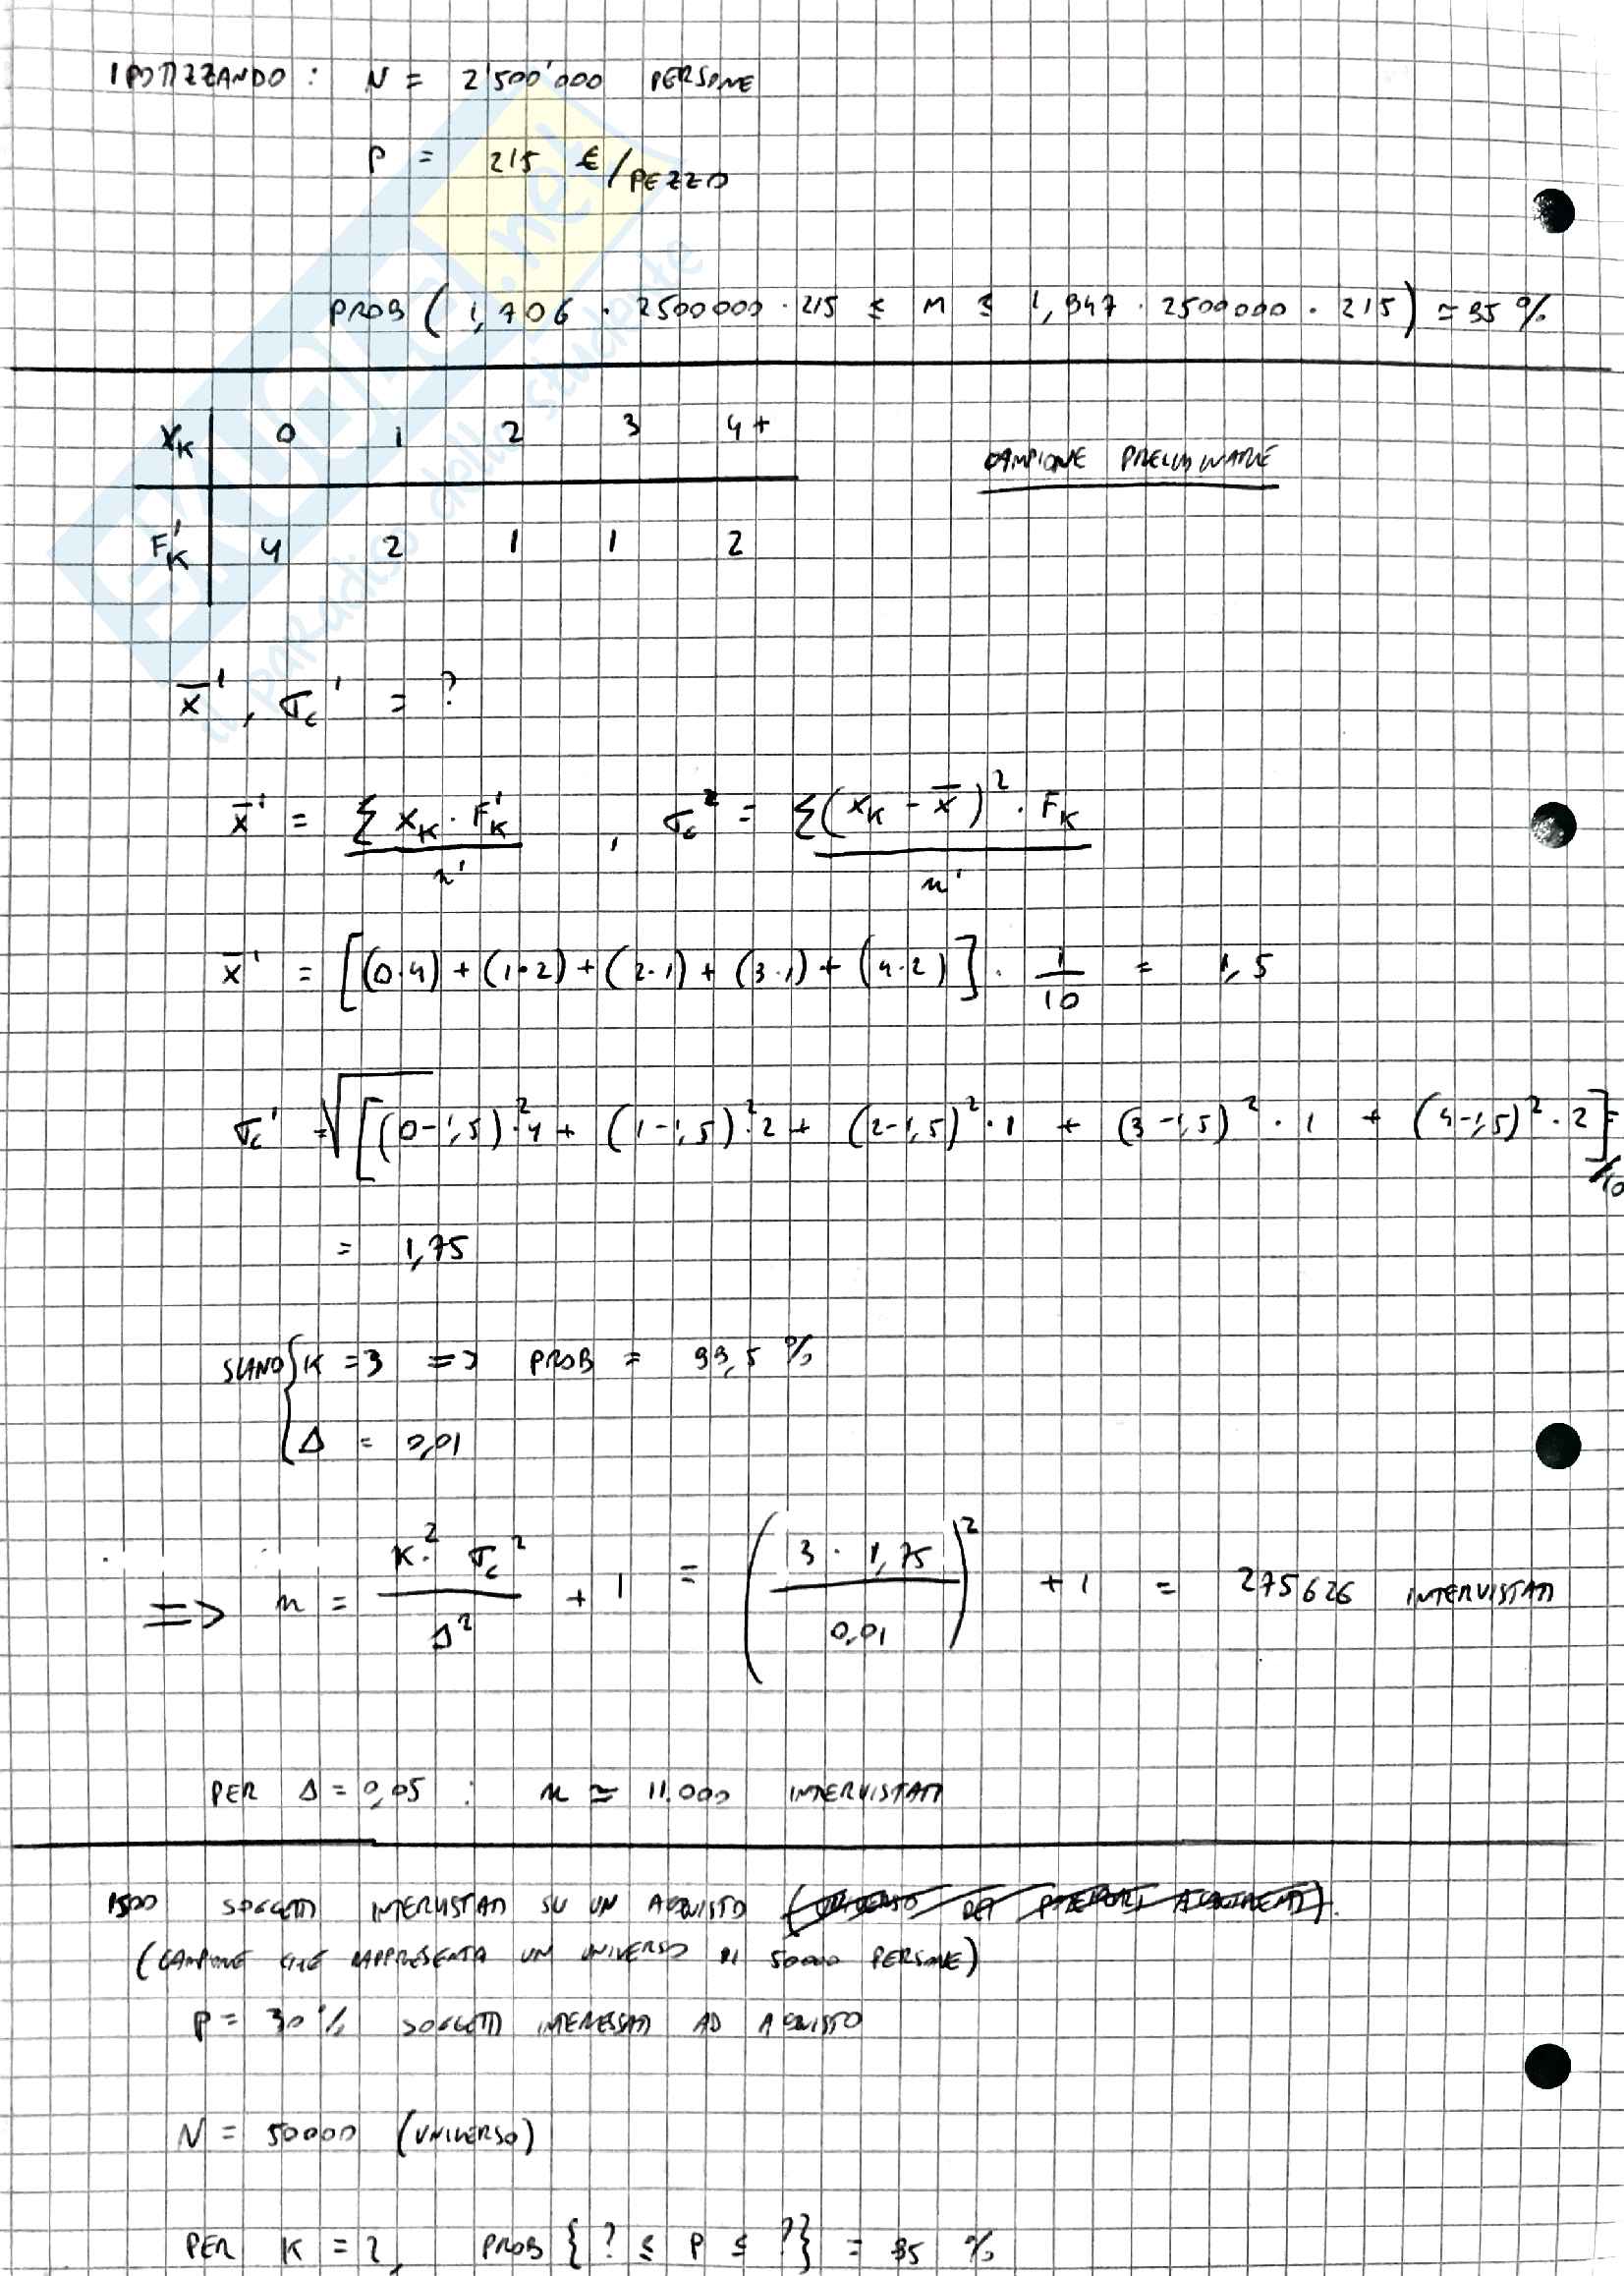 IPOTIZZANDO : N = 2'500'000 PERSONE
P = 215 €/PEZZO
PROB ( 1,706 · 2500000 · 215 ≤ M ≤ 1,947 · 2500000 · 215 ) ≃ 95 %
XK 0 1 2 3 4+
CAMPIONE PRELIMINARE
F'K 4 2 1 1 2
x̄' , σc' = ?
x̄' = Σ XK · F'K / n' , σc² = Σ (XK - x̄)² · FK / n'
x̄' = [(0·4) + (1·2) + (2·1) + (3·1) + (4·2)] · 1/10 = 1,5
σc' = √[(0-1,5)²·4 + (1-1,5)²·2 + (2-1,5)²·1 + (3-1,5)²·1 + (4-1,5)²·2]/10 =
= 1,75
SIANO { K = 3 => PROB = 99,5 %
Δ = 0,01
=> n = K² · σc² / Δ² + 1 = ( 3 · 1,75 / 0,01 )² + 1 = 275626 INTERVISTATI
PER Δ = 0,05 : n ≃ 11.000 INTERVISTATI
1500 SOGGETTI INTERVISTATI SU UN ACQUISTO
(CAMPIONE CHE RAPPRESENTA UN UNIVERSO DI 50000 PERSONE)
P = 30 % SOGGETTI INTERESSATI AD ACQUISTO
N = 50000 (UNIVERSO)
PER K = 2, PROB { ? ≤ P ≤ ? } = 95 %
SKUOLA.net
il paradiso dello studente